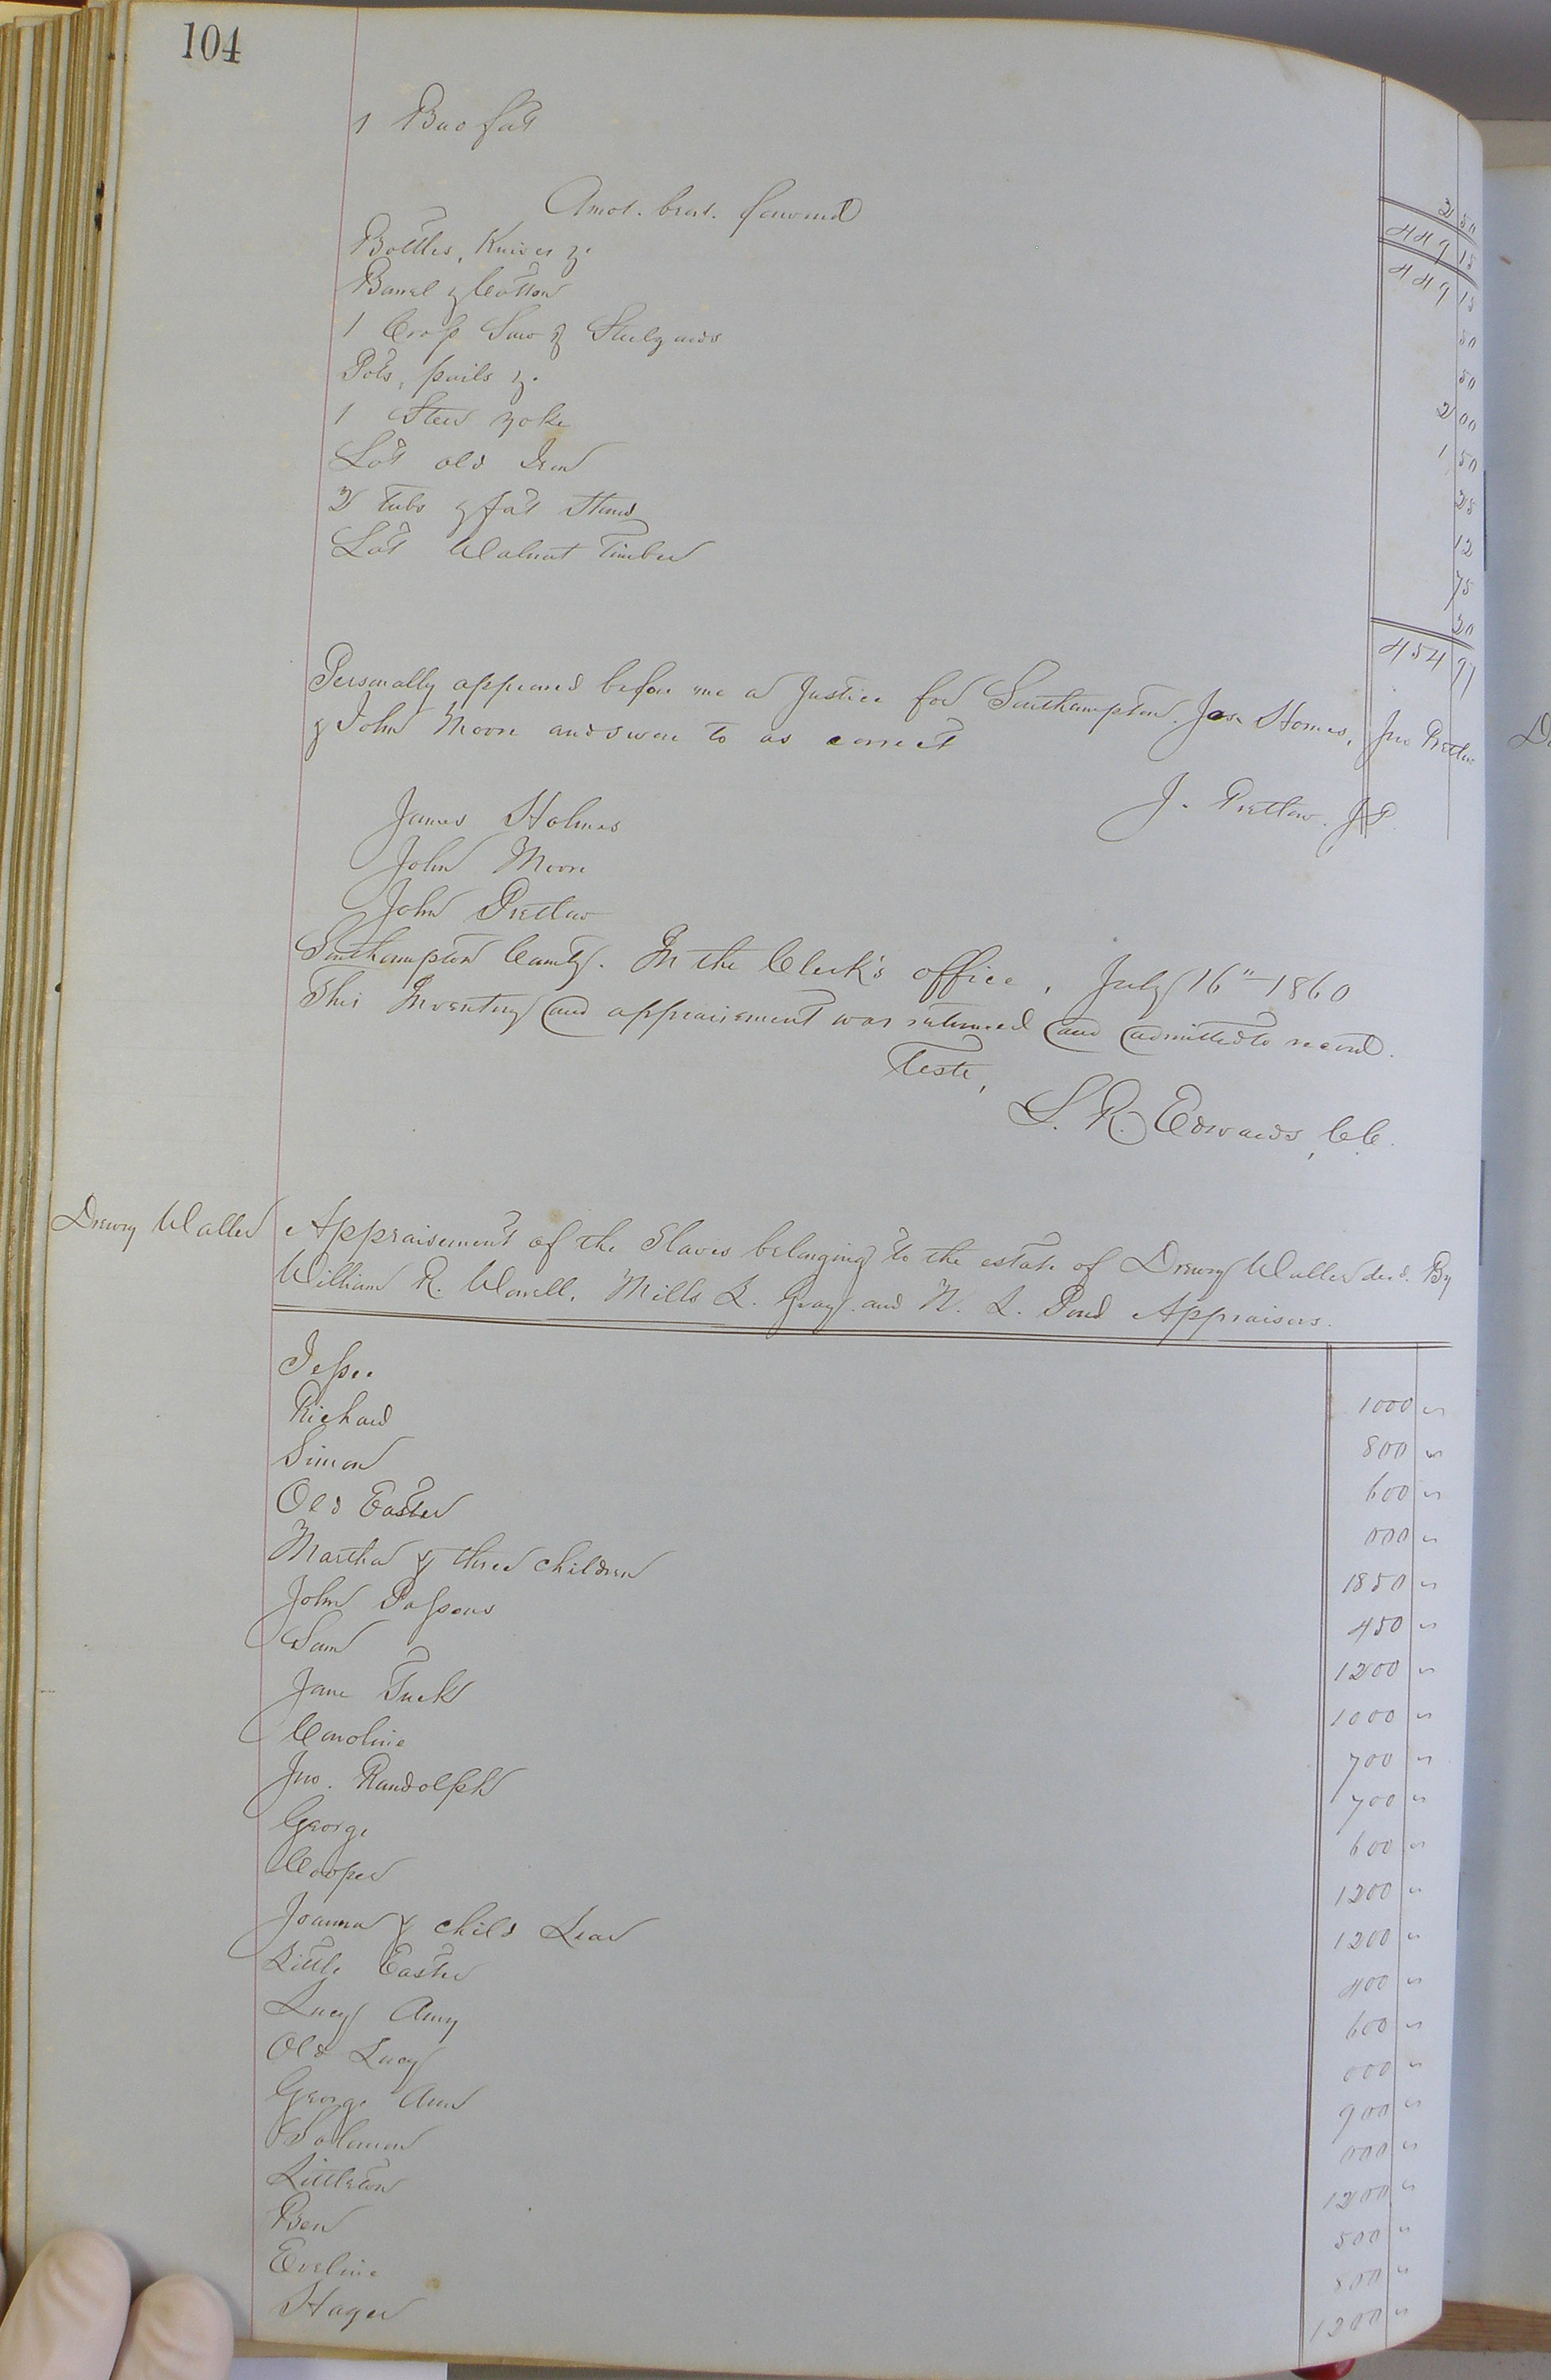 104
1 Buofat 2 50
449 15
Amot. brot. forward 449 15
Bottles, Knives &. 50
Barrel & Cotton 50
1 Cross Saw & Steelyards 2 00
Pots, pails &. 1 50
1 Steer yoke 25
Lot old Iron 12
2 tubs & fat Stand 75
Lot Walnut Timber 20
454 97
Personally appeared before me a Justice for Southampton. Jas Homes, Jno Pretlow
& John Moore and swore to as correct
J. Pretlow. JP
James Holmes
John Moore
John Pretlow
Southampton County. In the Clerk's office, July 16" 1860
This Inventory and appraisement was returned and admitted to record.
Teste,
L. R. Edwards, CC.
Drewry Waller Appraisement of the Slaves belonging to the estate of Drewry Waller decd. By
William R. Worrell, Mills L. Gray and W. L. Pond Appraisers.
Jesse 1000 "
Richard 800 "
Simon 600 "
Old Easter 000 "
Martha & three children 1850 "
John Passons 450 "
Sam 1200 "
Jane Tuck 1000 "
Caroline 700 "
Jno. Randolph 700 "
George 600 "
Cooper 1200 "
Joanna & child Lear 1200 "
Little Easter 400 "
Lucy Amy 600 "
Old Lucy 000 "
George Ann 900 "
Solomon 000 "
Littleton 1200 "
Ben 500 "
Eveline 800 "
Hager 1200 "